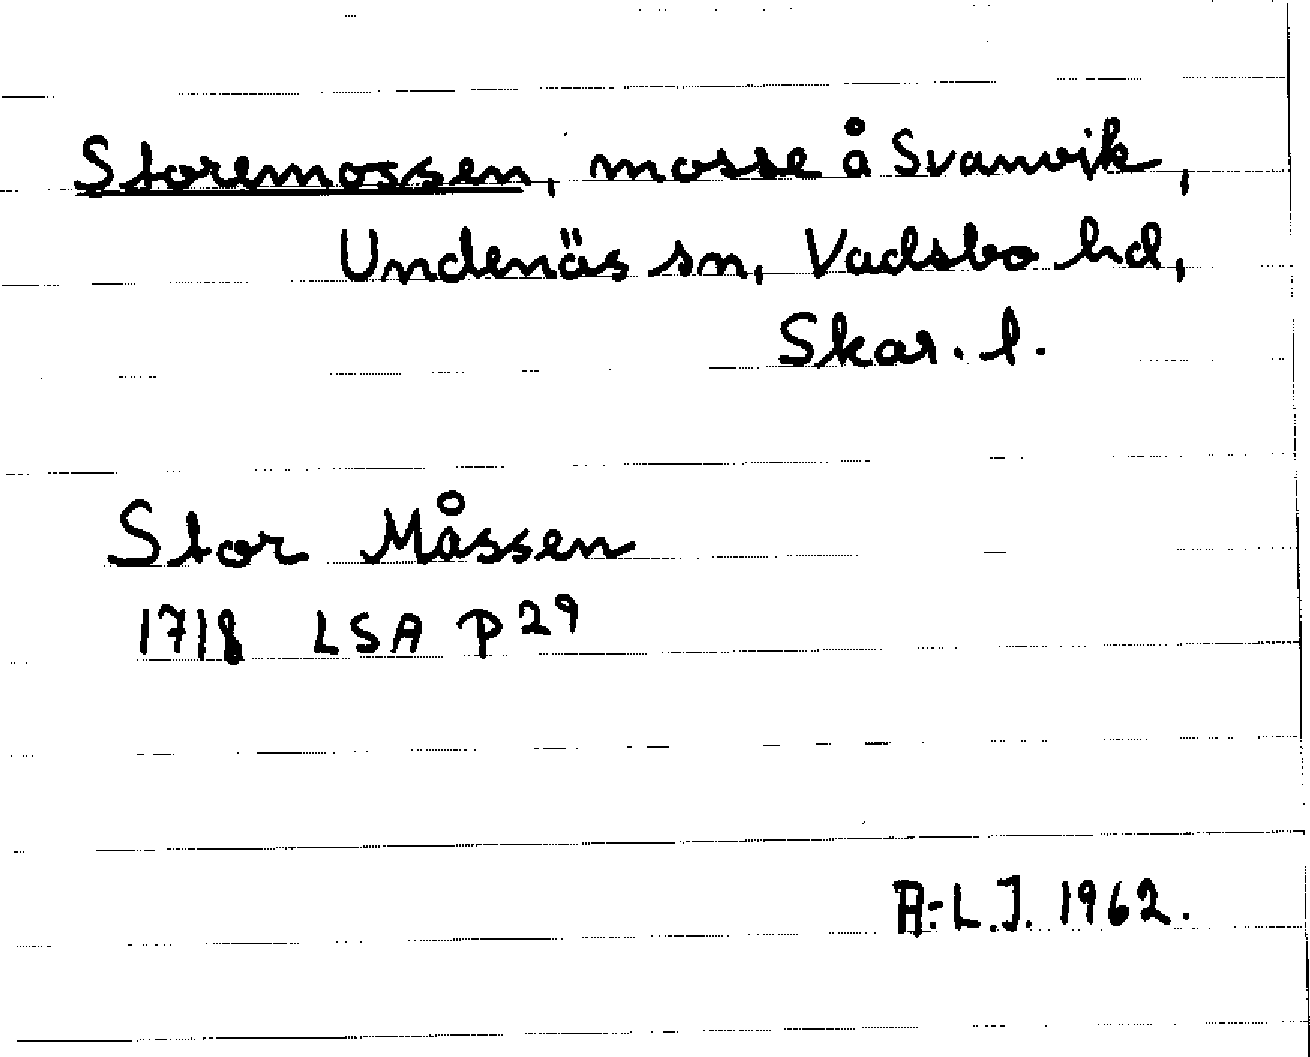 Storemossen, mosse å Svanvik,
Undenäs sn, Vadsbo hd,
Skar. l.
Stor Måssen
1718 LSA P 29
A-L.J. 1962.